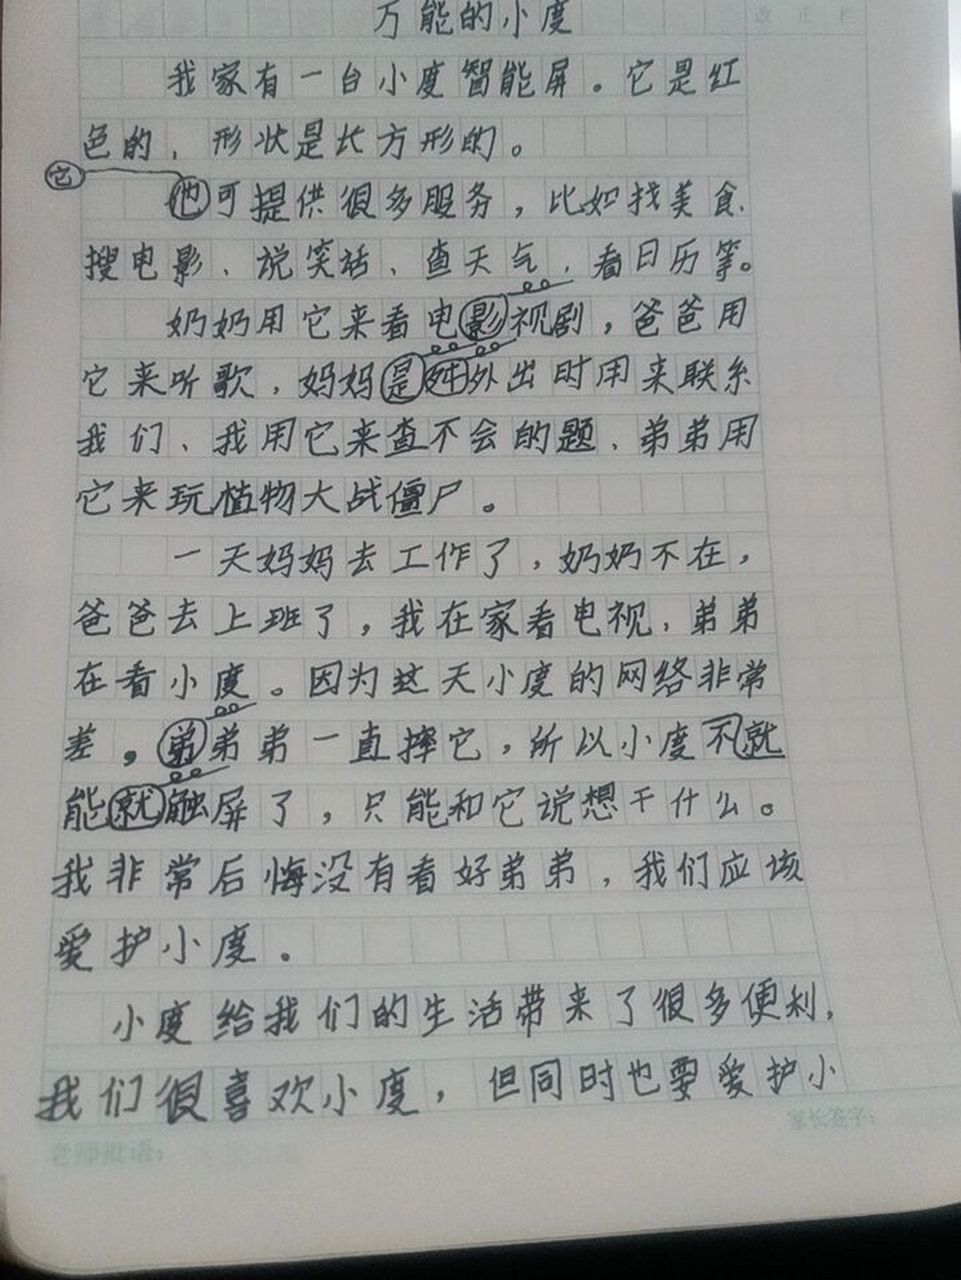 改正栏
万能的小度
我家有一台小度智能屏。它是红
色的，形状是长方形的。
它
他可提供很多服务，比如找美食、
搜电影、说笑话、查天气、看日历等。
奶奶用它来看电影视剧，爸爸用
它来听歌，妈妈是外出时用来联系
我们、我用它来查不会的题、弟弟用
它来玩植物大战僵尸。
一天妈妈去工作了，奶奶不在，
爸爸去上班了，我在家看电视，弟弟
在看小度。因为这天小度的网络非常
差，弟弟弟一直摔它，所以小度不就
能就触屏了，只能和它说想干什么。
我非常后悔没有看好弟弟，我们应该
爱护小度。
小度给我们的生活带来了很多便利，
我们很喜欢小度，但同时也要爱护小
家长签字：
老师批语：